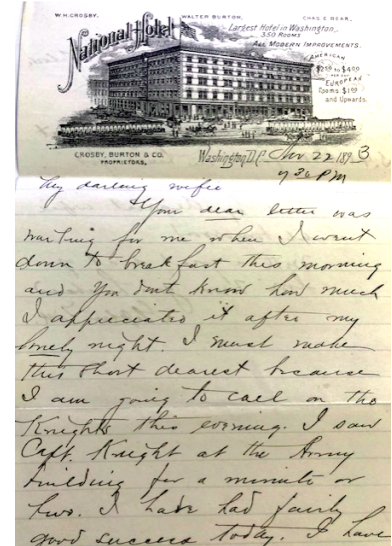 W.H. CROSBY. WALTER BURTON. CHAS. E. GEAR.
National Hotel
Largest Hotel in Washington.
350 ROOMS
ALL MODERN IMPROVEMENTS.
AMERICAN
$2.50 to $4.00
PER DAY
EUROPEAN
Rooms $1.00
and Upwards.
CROSBY, BURTON & CO.
PROPRIETORS.
Washington, D.C. Nov. 22 1893
7 30 PM
My darling wifie
Your dear letter was
waiting for me when I went
down to breakfast this morning
and you dont know how much
I appreciated it after my
lonely night. I must make
this short dearest because
I am going to call on the
Knights this evening. I saw
Capt. Knight at the Army
building for a minute or
two. I have had fairly
good success today. I have